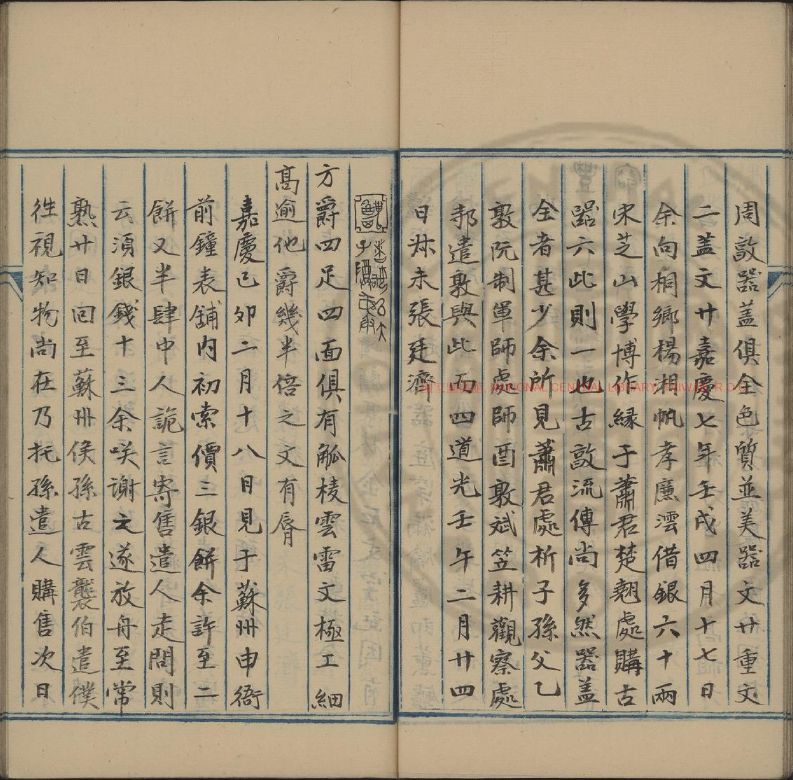 周敦器蓋俱全色質並美器文廿重文
二蓋文廿嘉慶七年壬戌四月十七日
余向桐鄉楊相帆孝廉澐借銀六十兩
宋芝山學博作緣于蕭君楚翹處購古
器六此則一也古敦流傳尚多然器蓋
全者甚少余所見蕭君處析子孫父乙
敦阮制軍師處師酉敦斌笠耕觀察處
邿遣敦與此而四道光壬午二月廿四
日叔未張廷濟
方爵四足四面俱有觚棱雲雷文極工細
高逾他爵幾半倍之文有脣
嘉慶己卯二月十八日見于蘇州申衙
前鐘表鋪內初索價三銀餅余許至二
餅又半肆中人詭言寄售遣人走問則
云須銀錢十三余咲謝之遂放舟至常
熟廿日回至蘇州侯孫古雲襲伯遣僕
往視知物尚在乃托孫遣人購售次日